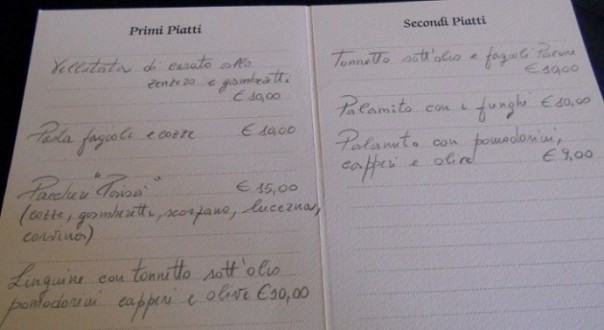 Primi Piatti
Vellutata di cavato allo
zenzero e gamberetti
€ 10,00
Pasta fagioli e cozze € 10,00
Paccheri " " € 15,00
(cozze, gamberetti, scorfano, lucerna,
Linguine con tonnetto sott'olio
pomodorini capperi e olive € 10,00
Secondi Piatti
Tonnetto sott'olio e fagioli
€ 10,00
Palamito con i funghi € 10,00
Palamito con pomodorini,
capperi e olive € 9,00